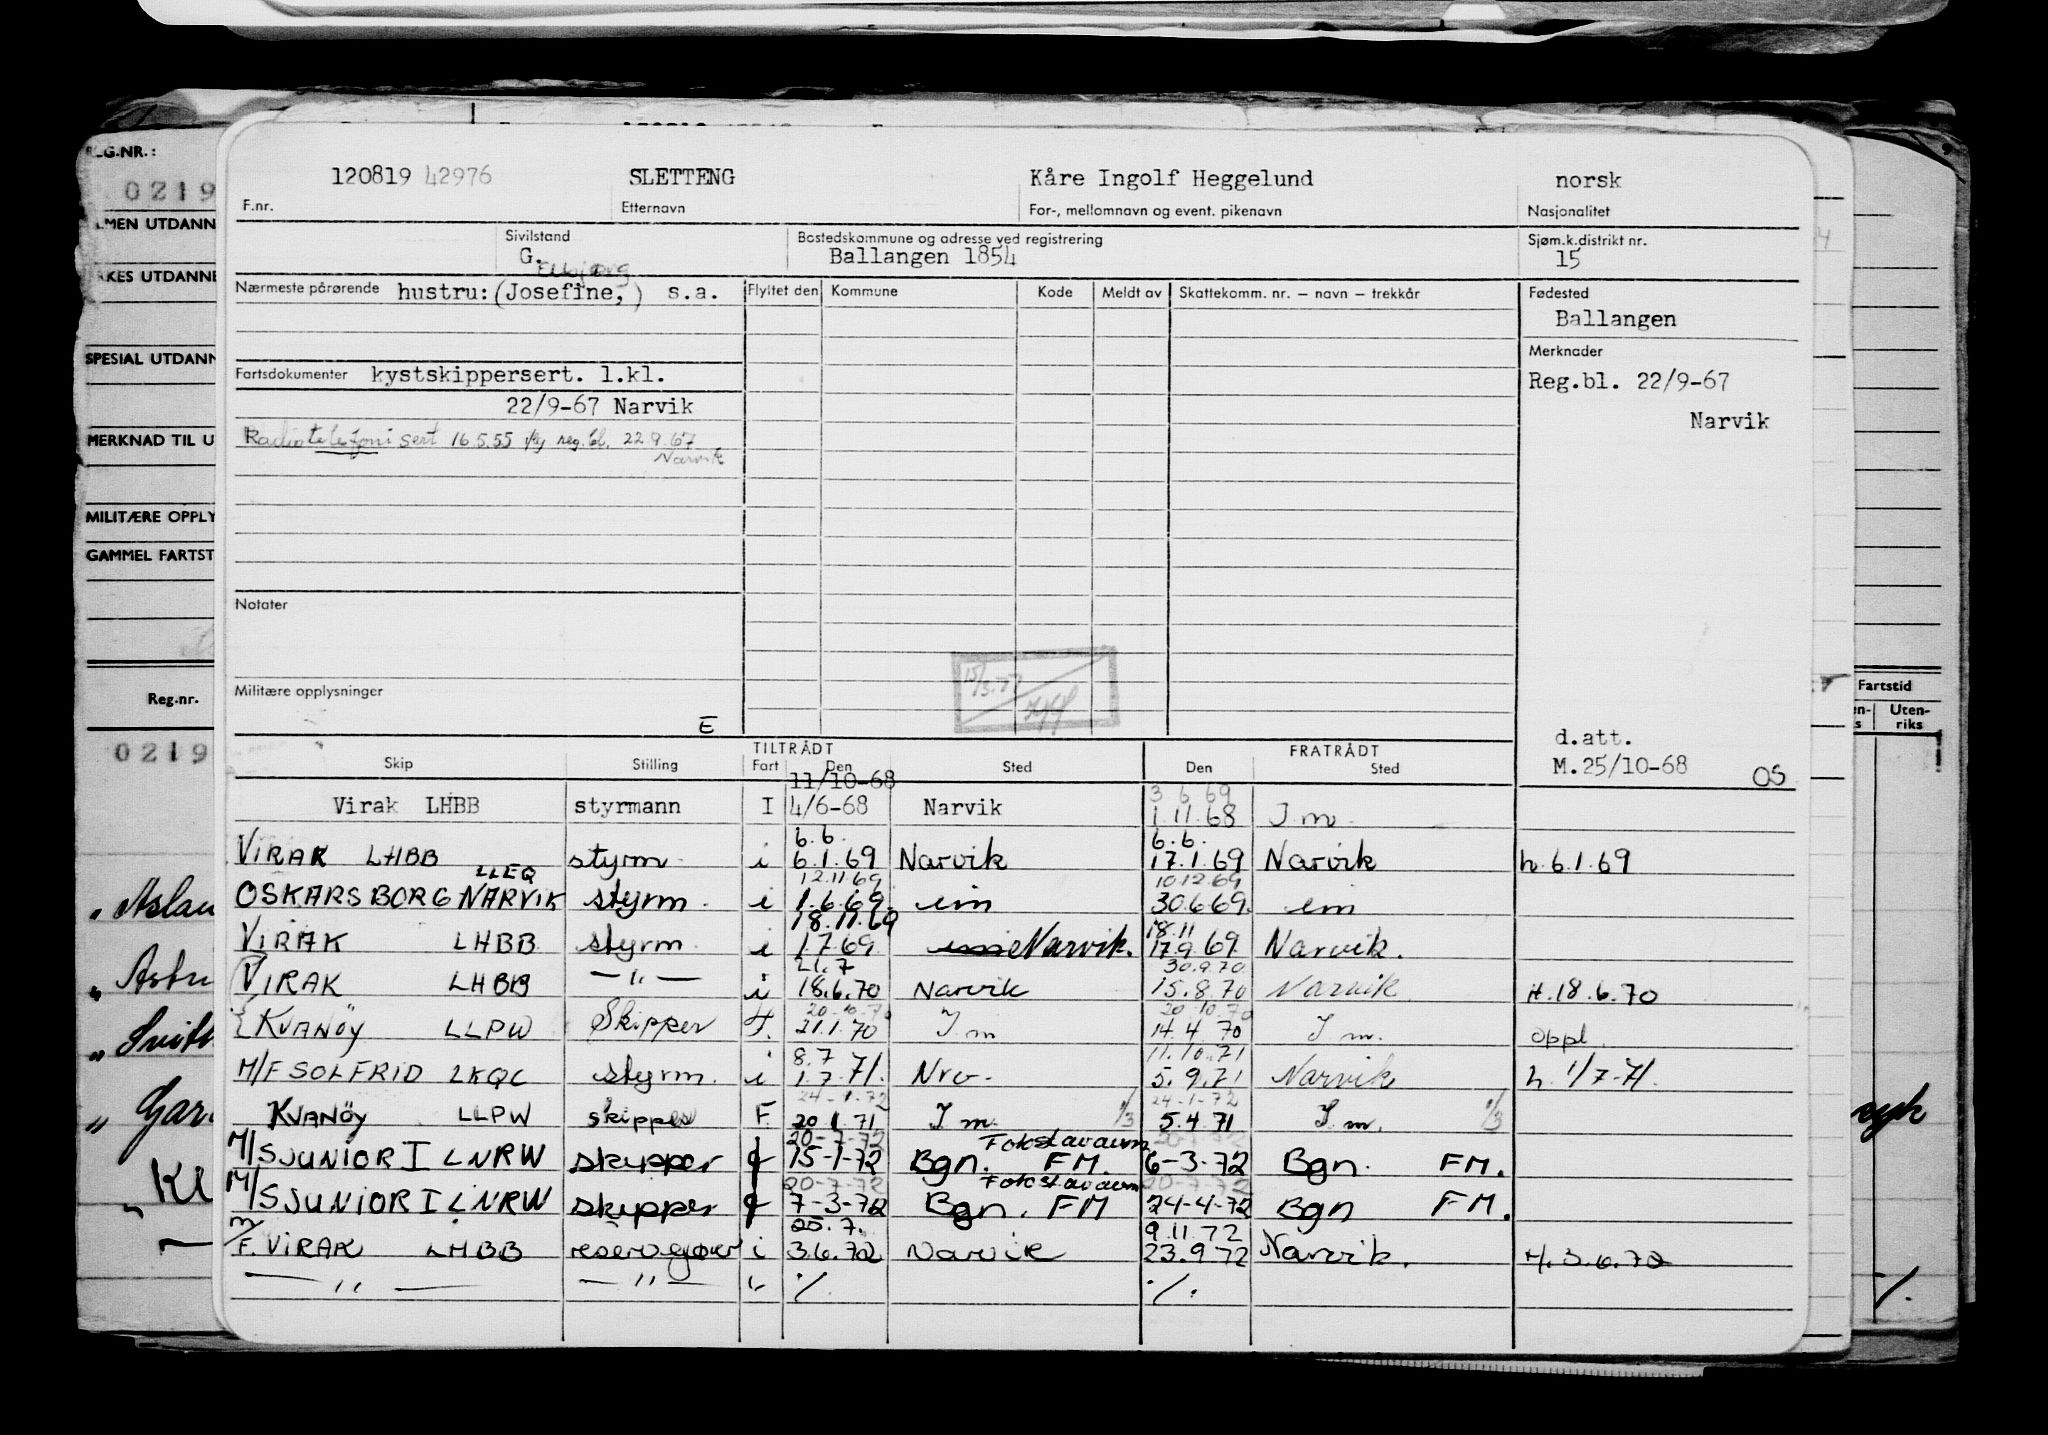 120819 42976 SLETTENG Kåre Ingolf Heggelund norsk
F.nr. Etternavn For-, mellomnavn og event. pikenavn Nasjonalitet
Sivilstand Bostedskommune og adresse ved registrering Sjøm.k.distrikt nr.
G. Ballangen 1854 15
Nærmeste pårørende hustru: (Josefine,) s.a. Flyttet den Kommune Kode Meldt av Skattekomm. nr. – navn – trekkår Fødested
Ballangen
Merknader
Fartsdokumenter kystskippersert. 1.kl. Reg.bl. 22/9-67
22/9-67 Narvik Narvik
Radiotelefoni sert 16.5.55 reg.bl. 22.9.67
Narvik
Notater
15/3.77
Militære opplysninger
E
d.att.
M.25/10-68 OS
TILTRÅDT FRATRÅDT
Skip Stilling Fart Den Sted Den Sted
11/10-68 3.6.69
Virak LHBB styrmann I 4/6-68 Narvik 1.11.68 I m.
6.6. 6.6.
VIRAK LHBB styrm. i 6.1.69 Narvik 17.1.69 Narvik h.6.1.69
LLEQ 12.11.69 10.12.69
OSKARSBORG NARVIK styrm. i 1.6.69. im 30.6.69. im
18.11.69 18.11
VIRAK LHBB styrm. i 1.7.69. Narvik. 17.9.69. Narvik.
21.7 30.9.70
VIRAK LHBB —"— i 18.6.70 Narvik 15.8.70 Narvik. H.18.6.70
20-10-70 20.10.70
KVANÖY LLPW Skipper F. 21.1.70 I m 14.4.70 I m. oppl.
8.7 11.10.71
M/F SOLFRID LKQC styrm. i 1.7.71. Nrv. 5.9.71 Narvik h. 1/7-71.
24-1-72 24-1-72
KVANÖY LLPW skipper F. 20.1.71 I m. 1/3 5.4.71 I m. 1/3
20-7-72 Fokstavaum 20-7-72
M/S JUNIOR I LNRW skipper f 15-1-72 Bgn. FM. 6-3-72 Bgn. FM.
20-7-72 Fokstavaum 20-7-72
M/S JUNIOR I LNRW skipper f 7-3-72 Bgn. FM 24-4-72 Bgn FM.
25.7. 9.11.72
m/F. VIRAK LHBB i 3.6.72 Narvik 23.9.72 Narvik. H.3.6.72
—"— —"— " ./. ./.
REG.NR.:
0219
SPESIAL UTDANN
MERKNAD TIL U
MILITÆRE OPPLY
GAMMEL FARTST
Reg.nr.
0219
Fartstid
Uten-
riks